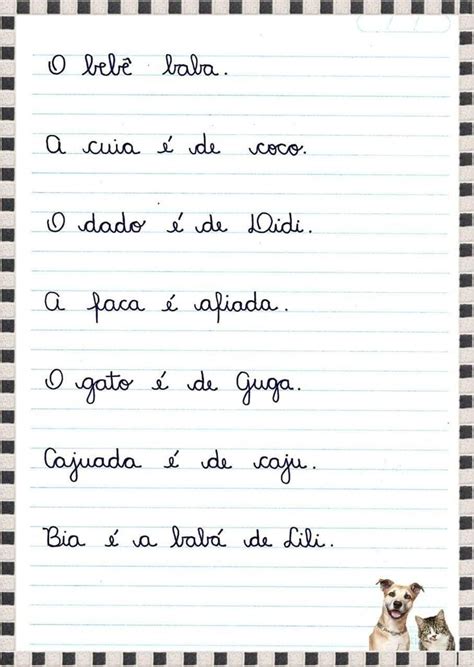 O bebê baba.
A cuia é de coco.
O dado é de Didi.
A faca é afiada.
O gato é de Guga.
Cajuada é de caju.
Bia é a babá de Lili.